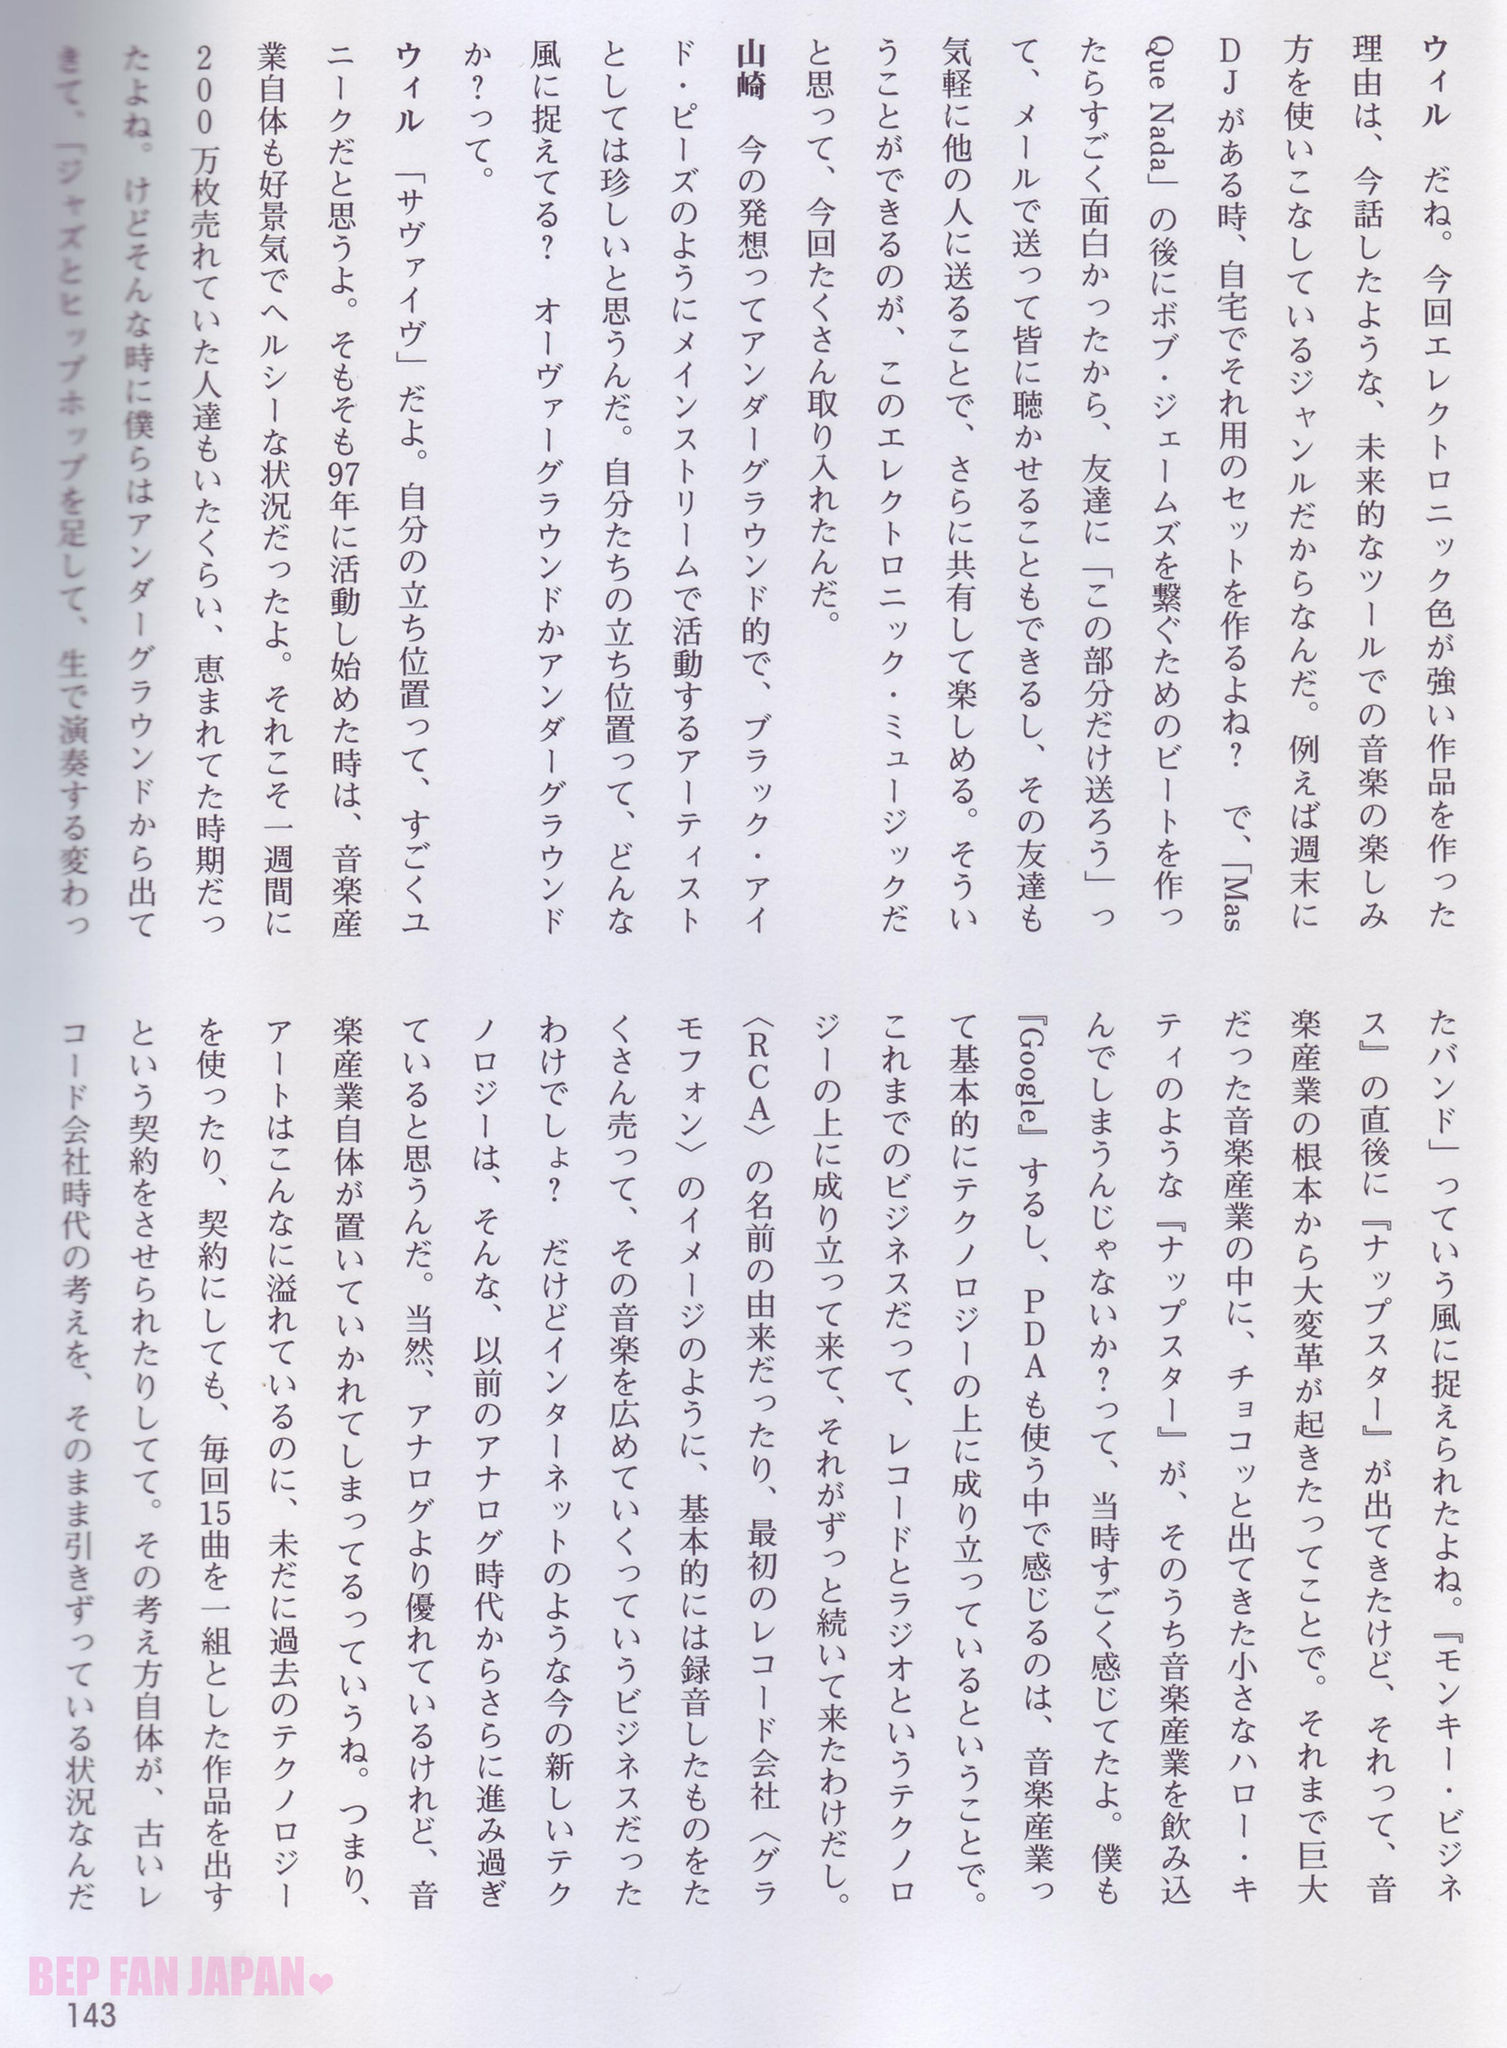 ウィル　だね。今回エレクトロニック色が強い作品を作った
理由は、今話したような、未来的なツールでの音楽の楽しみ
方を使いこなしているジャンルだからなんだ。例えば週末に
DJがある時、自宅でそれ用のセットを作るよね？　で、「Mas
Que Nada」の後にボブ・ジェームズを繋ぐためのビートを作っ
たらすごく面白かったから、友達に「この部分だけ送ろう」っ
て、メールで送って皆に聴かせることもできるし、その友達も
気軽に他の人に送ることで、さらに共有して楽しめる。そうい
うことができるのが、このエレクトロニック・ミュージックだ
と思って、今回たくさん取り入れたんだ。
山崎　今の発想ってアンダーグラウンド的で、ブラック・アイ
ド・ピーズのようにメインストリームで活動するアーティスト
としては珍しいと思うんだ。自分たちの立ち位置って、どんな
風に捉えてる？　オーヴァーグラウンドかアンダーグラウンド
か？って。
ウィル　「サヴァイヴ」だよ。自分の立ち位置って、すごくユ
ニークだと思うよ。そもそも97年に活動し始めた時は、音楽産
業自体も好景気でヘルシーな状況だったよ。それこそ一週間に
200万枚売れていた人達もいたくらい、恵まれてた時期だっ
たよね。けどそんな時に僕らはアンダーグラウンドから出て
きて、「ジャズとヒップホップを足して、生で演奏する変わっ
たバンド」っていう風に捉えられたよね。『モンキー・ビジネ
ス』の直後に『ナップスター』が出てきたけど、それって、音
楽産業の根本から大変革が起きたってことで。それまで巨大
だった音楽産業の中に、チョコッと出てきた小さなハロー・キ
ティのような『ナップスター』が、そのうち音楽産業を飲み込
んでしまうんじゃないか？って、当時すごく感じてたよ。僕も
『Google』するし、PDAも使う中で感じるのは、音楽産業っ
て基本的にテクノロジーの上に成り立っているということで。
これまでのビジネスだって、レコードとラジオというテクノロ
ジーの上に成り立って来て、それがずっと続いて来たわけだし。
〈RCA〉の名前の由来だったり、最初のレコード会社〈グラ
モフォン〉のイメージのように、基本的には録音したものをた
くさん売って、その音楽を広めていくっていうビジネスだった
わけでしょ？　だけどインターネットのような今の新しいテク
ノロジーは、そんな、以前のアナログ時代からさらに進み過ぎ
ていると思うんだ。当然、アナログより優れているけれど、音
楽産業自体が置いていかれてしまってるっていうね。つまり、
アートはこんなに溢れているのに、未だに過去のテクノロジー
を使ったり、契約にしても、毎回15曲を一組とした作品を出す
という契約をさせられたりしてて。その考え方自体が、古いレ
コード会社時代の考えを、そのまま引きずっている状況なんだ
BEP FAN JAPAN❤
143